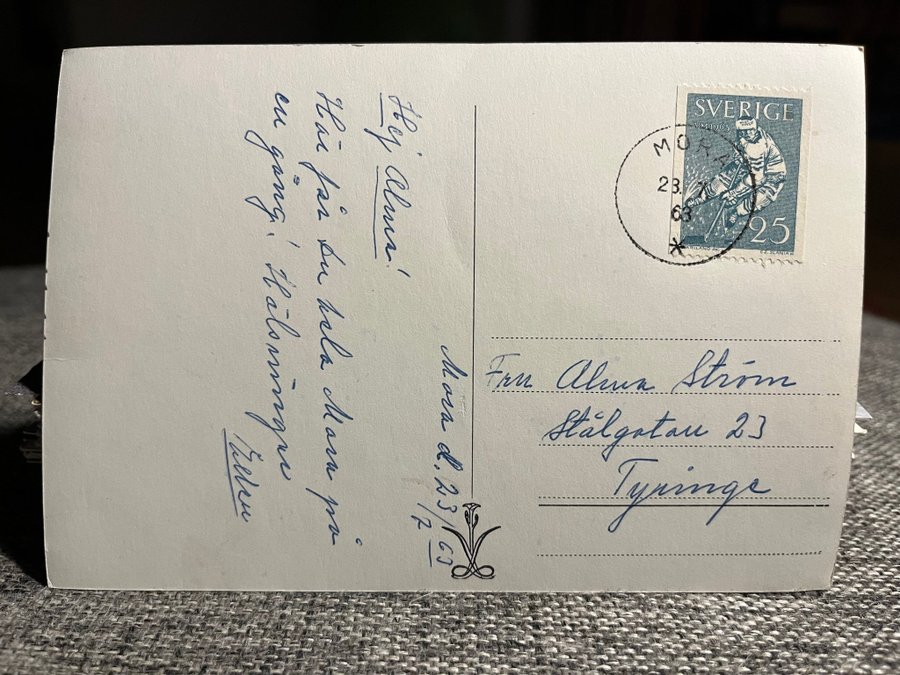 Mora d. 23/7 63
Hej Alma!
Här får Du hela Mora på
en gång! Hälsningar
SVERIGE
25
MORA
23. 7
63
*
Fru Alma Ström
Stålgatan 23
Tyringe